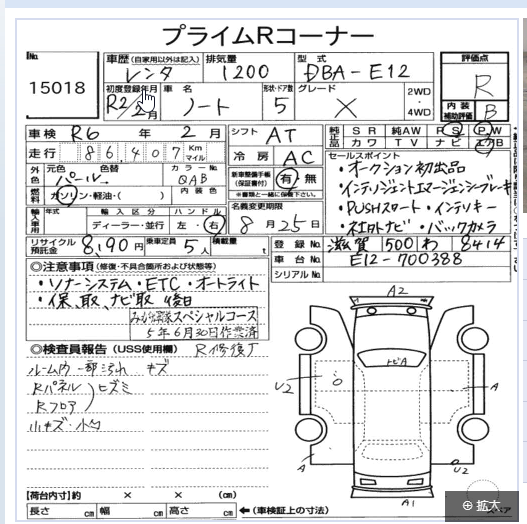 プライムRコーナー
No.
15018
車歴(自家用以外は記入)
レンタ
排気量
1200
型式
DBA-E12
評価点
R
内装補助評価
B
初度登録年月
R2/2月
車名
ノート
形状・ドア数
5
グレード
X
2WD
4WD
車検 R6年2月
走行 86,407 Km マイル
シフト AT
冷房 AC
純正品 SR 純AW PS PW
カワ TV ナビ エアB
外色 元色 パール
色替
カラーNo. QAB
内装色
燃料 ガソリン・軽油・( )
新車整備手帳(保証書付) 有 無
セールスポイント
・オークション初出品
・インテリジェントエマージェンシーブレーキ
・PUSHスタート・インテリキー
・ストロトナビ・バックカメラ
輸入車用 年式 輸入区分 ディーラー・並行
ハンドル 左・右
名義変更期限
8月25日
リサイクル預託金 8,190円
乗車定員 5人
積載量 t
登録No. 滋賀 500 わ 8414
車台No. E12-700388
シリアルNo.
◎注意事項(修復・不具合箇所および状態等)
・ソナーシステム・ETC・オートライト
・保、取、ナビ取 後日
スペシャルコース
5年6月30日作業済
◎検査員報告(USS使用欄) R修復了
ルーム内一部汚れ キズ
Rパネル
Rフロア
ヒズミ
小キズ・小凹
A2
トビA
U2
A
A
U2
A1
【荷台内寸】約 × × (cm)
長さ cm 幅 cm 高さ cm
←(車検証上の寸法)
拡大